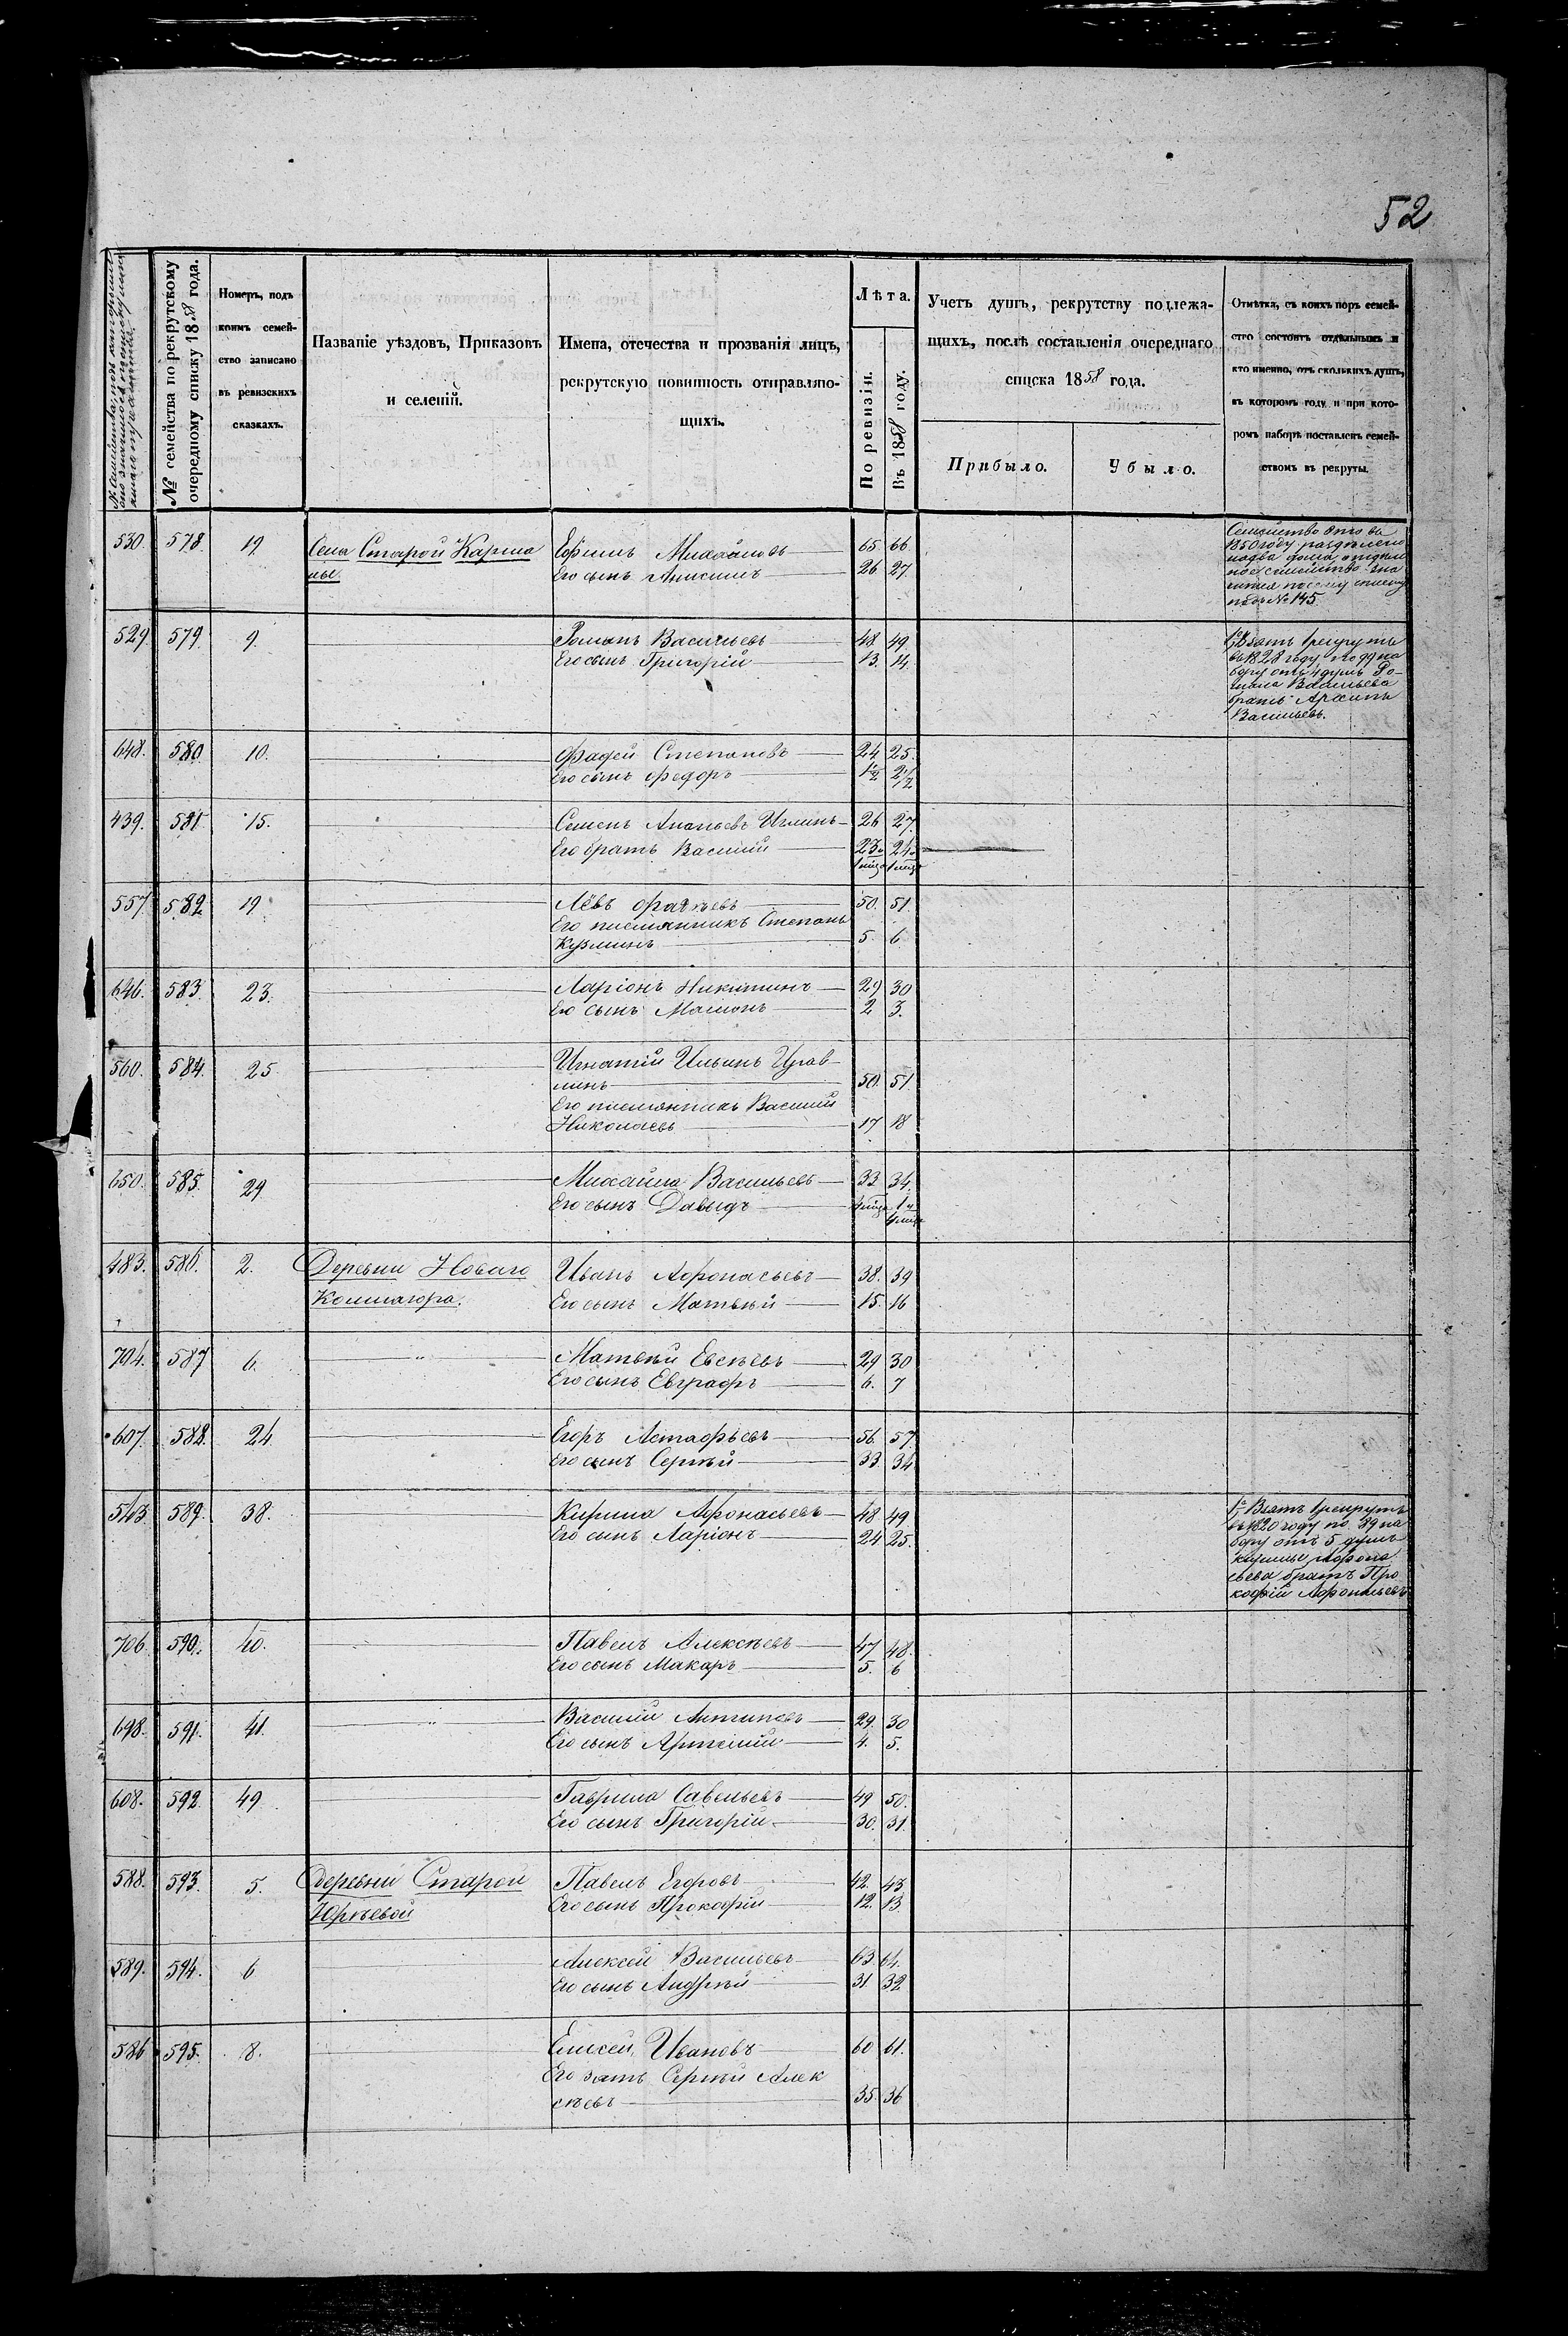 52
№ семейства по рекрутскому очередному списку 1858 года.
Номеръ, подъ коимъ семейство записано въ ревизскихъ сказкахъ.
Названіе уѣздовъ, Приказовъ и селеній.
Имена, отечества и прозванія лицъ, рекрутскую повинность отправляющихъ.
Лѣта.
По ревизіи.
Въ 1858 году.
Учетъ душъ, рекрутству подлежащихъ, послѣ составленія очереднаго списка 1858 года.
Прибыло.
Убыло.
Отмѣтка, съ коихъ поръ семейство состоитъ отдѣльнымъ и кто именно, отъ сколькихъ душъ, въ которомъ году и при которомъ наборѣ поставленъ семействомъ въ рекруты.
530. 578. 19 Села Старой Карма Ефимъ Михайловъ 65 66
лы. Его сынъ Анисимъ 26 27
Семейство это въ
1850 году раздѣлено
на два дома, отдѣль
ное семейство зна
чится по сему списку
подъ № 145.
529 579. 9. Романъ Васильевъ 48 49
Его сынъ Григорій 13. 14.
Взятъ 1 рекрутъ
въ 1828 году по 99 на
бору отъ 4 душъ Ро-
мана Васильева
братъ Архипъ
Васильевъ.
648. 580 10. Фадей Степановъ 24 25.
Его сынъ Федоръ 1½ 2½
439. 581 15. Семенъ Ананьевъ 26 27.
Его братъ Василій 23. 24.
557. 582 19 Левъ 50. 51.
Его племянникъ Степанъ
Кузминъ 5. 6
646. 583. 23. Ларіонъ Никитинъ 29 30
Его сынъ 2 3.
560. 584. 25 Игнатій Ильинъ
50. 51.
Его племянникъ Василій
Николаевъ 17 18
650. 585. 29 Михайла Васильевъ 33. 34.
Его сынъ Давыдъ
483. 586. 2. Деревни Новаго Иванъ Афонасьевъ 38. 39
Кошпагора. Его сынъ Матвѣй 15. 16
704. 587 6. Матвѣй Евсѣевъ 29 30
Его сынъ Евграфъ 6. 7
607. 588. 24 Егоръ Астафьевъ 56. 57.
Его сынъ Сергѣй 33. 34
543. 589. 38. Кирила Афонасьевъ 48 49
Его сынъ Ларіонъ 24 25.
Взятъ 1 рекрутъ
въ 1820 году по 89 на
бору отъ 5 душъ
Кирилы Афона
сьева братъ Про
кофій Афонасьевъ
706. 590. 40. Павелъ Алексѣевъ 47 48.
Его сынъ Макаръ 5. 6
698. 591. 41. Василій Антиповъ 29. 30
Его сынъ Артемій 4. 5.
608. 592 49 Гаврила Савельевъ 49 50.
Его сынъ Григорій 30. 31.
588. 593. 5. Деревни Старой Павелъ Егоровъ 42. 43
Юрьевой Его сынъ Прокофій 12. 13.
589. 594. 6 Алексѣй Васильевъ 63. 64.
Его сынъ Андрѣй 31 32
586 595. 8. Елисей Ивановъ 60 61.
Его зять Сергѣй Алек
сѣевъ 35. 36